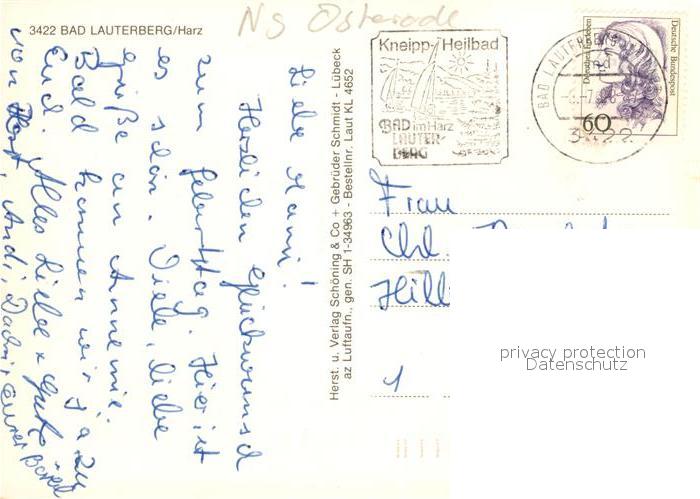 3422 BAD LAUTERBERG/Harz
Ns Osterode
Liebe Mami!
Herzlichen Glückwunsch
zum Geburtstag. Hier ist
es schön. Viele, liebe
Grüße an Annemie.
Bald kommen wir ja zu
Euch. Alles Liebe + Gute
von Andi,
Herst. u. Verlag Schöning & Co + Gebrüder Schmidt - Lübeck
az Luftaufn., gen. SH 1-34963 - Bestellnr. Laut KL 4652
Kneipp-Heilbad
BAD im Harz
LAUTER-
BERG
BAD LAUTERBERG
3422
Dorothea Erxleben
Deutsche Bundespost
60
Frau
Chr.
Hill
1
privacy protection
Datenschutz